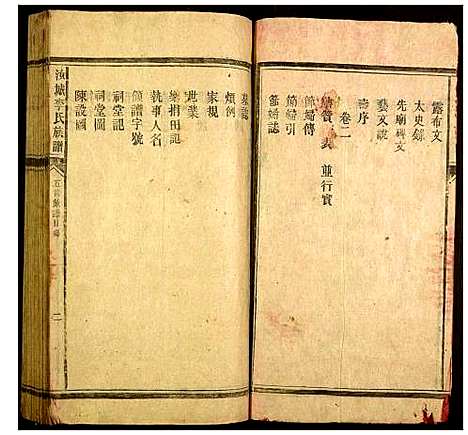 露布文
太史錄
先廟碑文
藝文說
壽序
卷二
像贊 並行實
節婦傳
節婦引
節婦誌
墓誌
煩例
家規
世業
樂捐田記
執事人名
領譜字號
祠堂記
祠堂圖
陳設圖
汝城李氏族譜
二